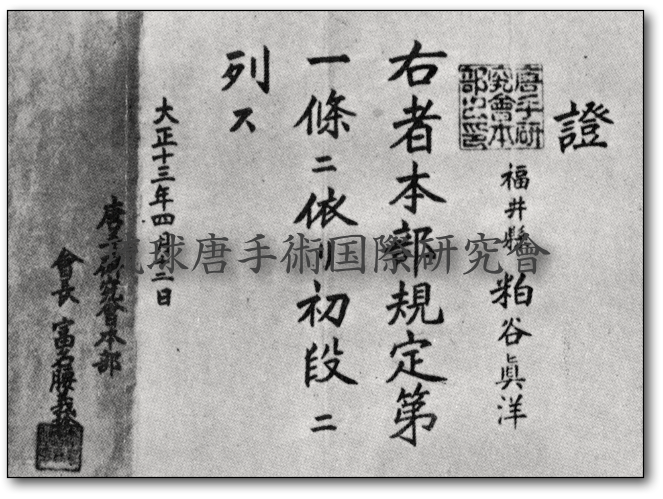 證
唐手研
究會本
部之印
福井縣 粕谷眞洋
右者本部規定第
一條ニ依リ初段ニ
列ス
大正十三年四月十二日
唐手研究會本部
會長 富名腰義珍
琉球唐手術国際研究會